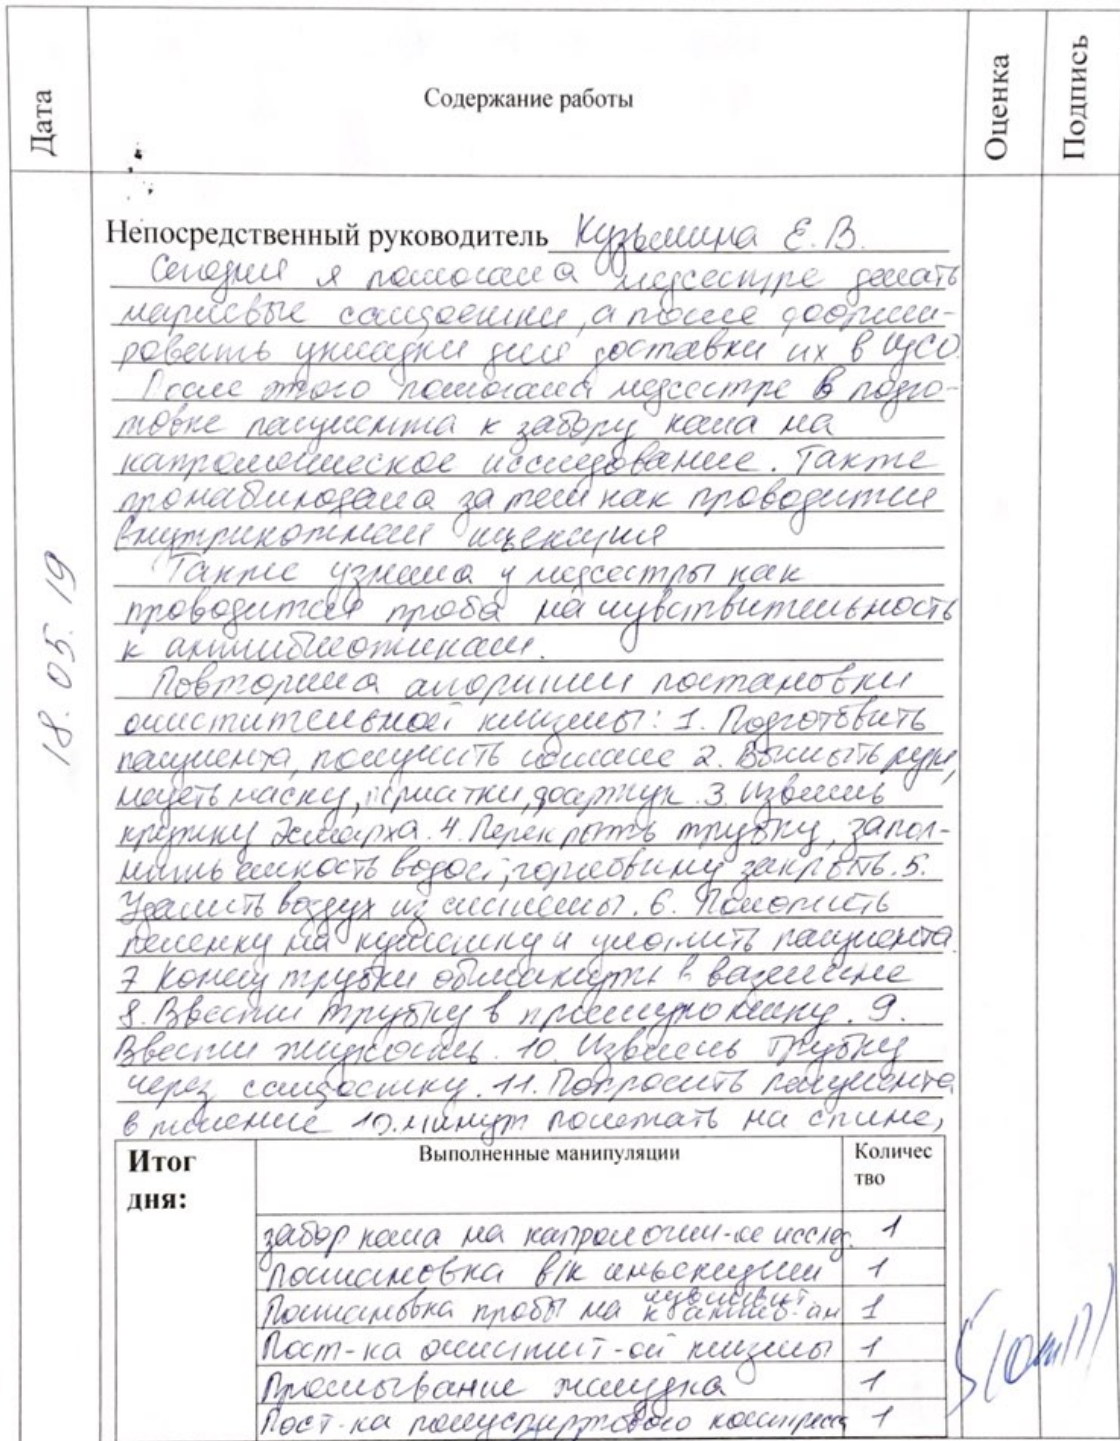 Дата
Содержание работы
Оценка
Подпись
Непосредственный руководитель Кузьмина Е.В.
Сегодня я помогала медсестре делать
марлевые салфетки, а после
укладки для доставки их в ЦСО.
После этого помогала медсестре в подго-
товке пациента к забору кала на
капрологическое исследование. Также
пронаблюдала за тем как проводится
внутрикожная инъекция
Также узнала у медсестры как
проводится проба на чувствительность
к антибиотикам.
18.05.19
Повторила алгоритм постановки
очистительной клизмы: 1. Подготовить
пациента, получить 2. Вымыть руки,
надеть маску, перчатки, фартук. 3. Извлечь
кружку Эсмарха. 4. Перекрыть трубку, запол-
нить емкость водой, горловину закрыть. 5.
Удалить воздух из системы. 6. Положить
пеленку на кушетку и уложить пациента.
7 Конец трубки обмакнуть в вазелине
8. Ввести трубку в прямую кишку. 9.
Ввести жидкость. 10. Извлечь трубку
через салфетку. 11. Попросить пациента
в течение 10 минут полежать на спине,
Итог дня:
Выполненные манипуляции
Количес
тво
забор кала на капрологич-ое исслед. 1
Постановка в/к иньекции 1
Постановка пробы на чувствит. к антиб-ам 1
Пост-ка очистит-ой клизмы 1
Промывание желудка 1
Пост-ка полуспиртового компресса 1
5(отл)